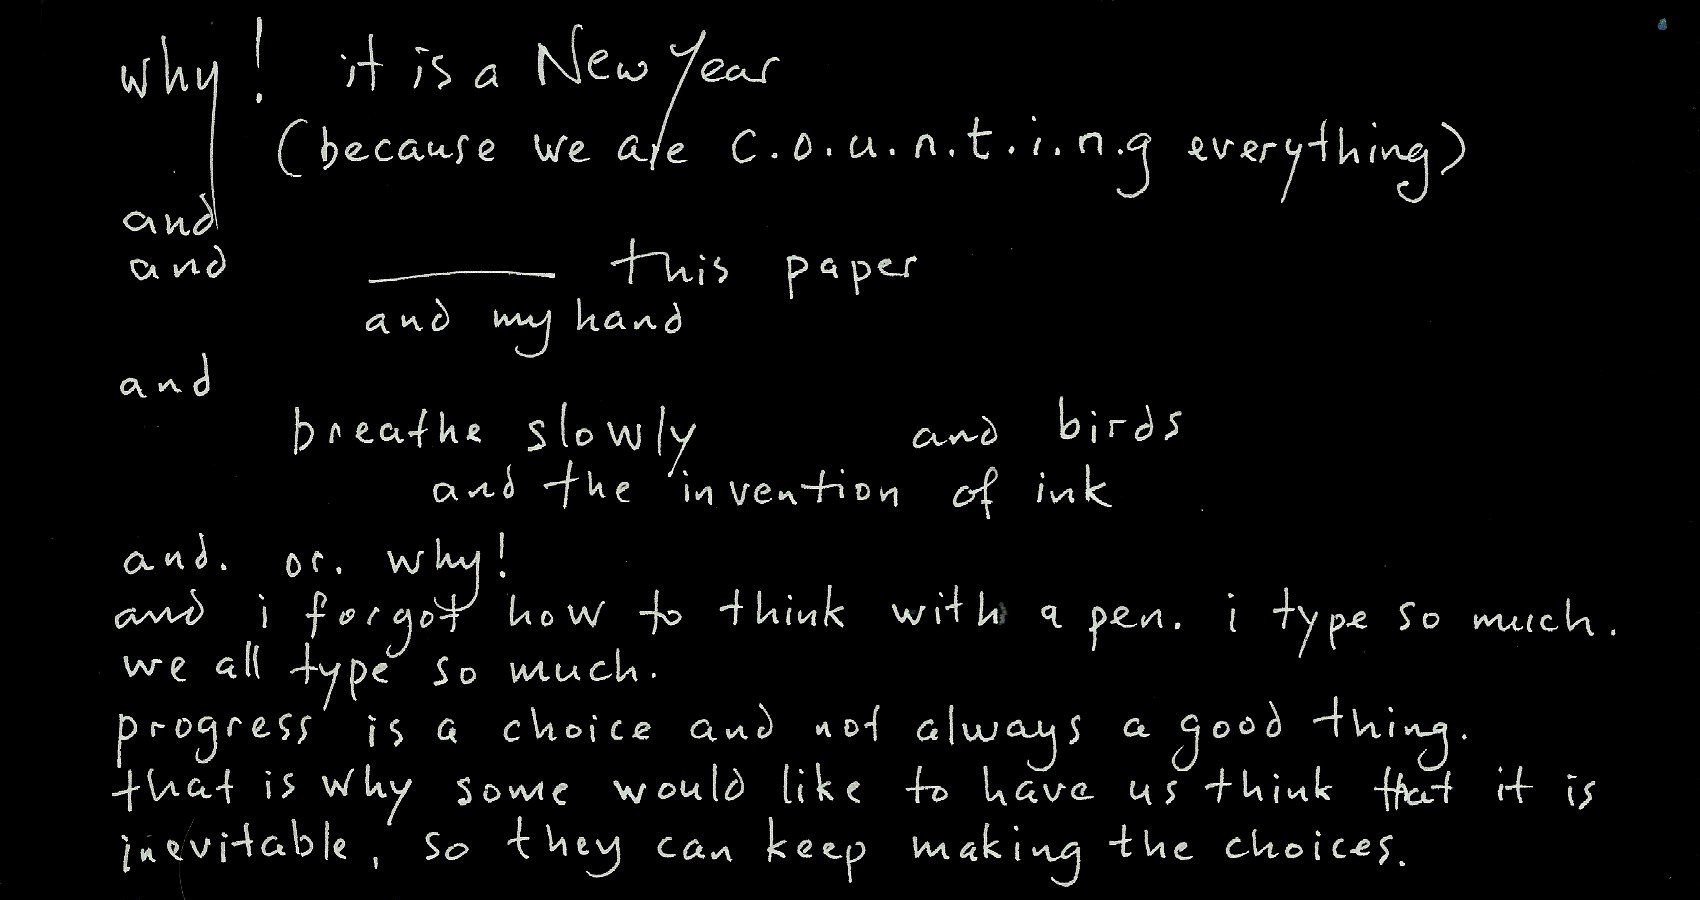 why! it is a New Year
(because we are c.o.u.n.t.i.n.g everything)
and
and ______ this paper
and my hand
and
breathe slowly and birds
and the invention of ink
and. or. why!
and i forgot how to think with a pen. i type so much.
we all type so much.
progress is a choice and not always a good thing.
that is why some would like to have us think that it is
inevitable, so they can keep making the choices.